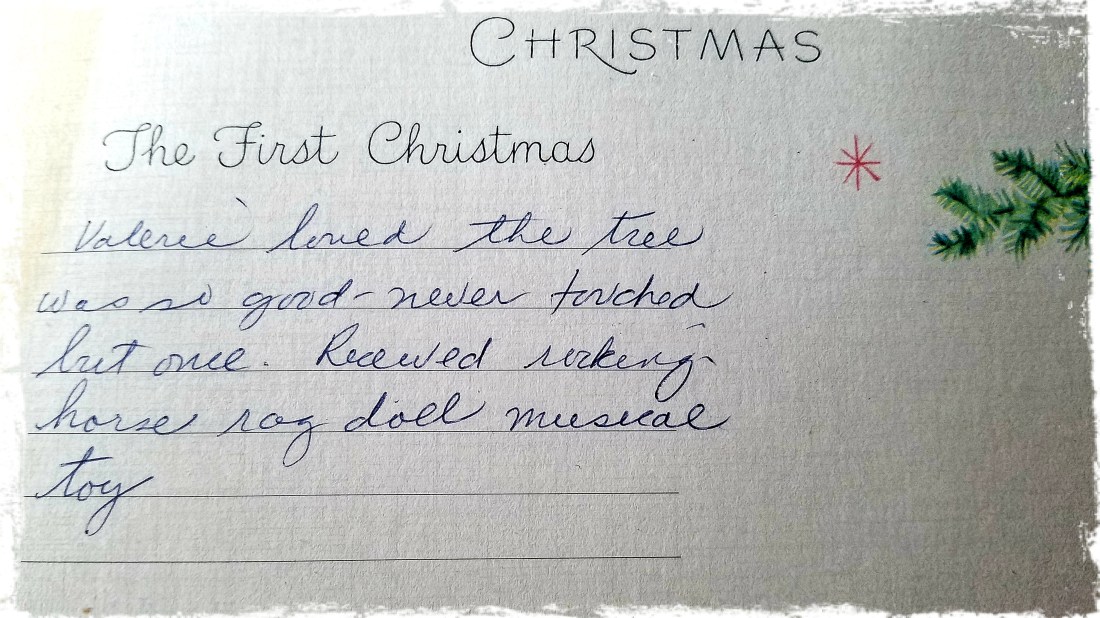 CHRISTMAS
The First Christmas
Valerie loved the tree
was so good - never touched
but once. Received rocking
horse rag doll musical
toy